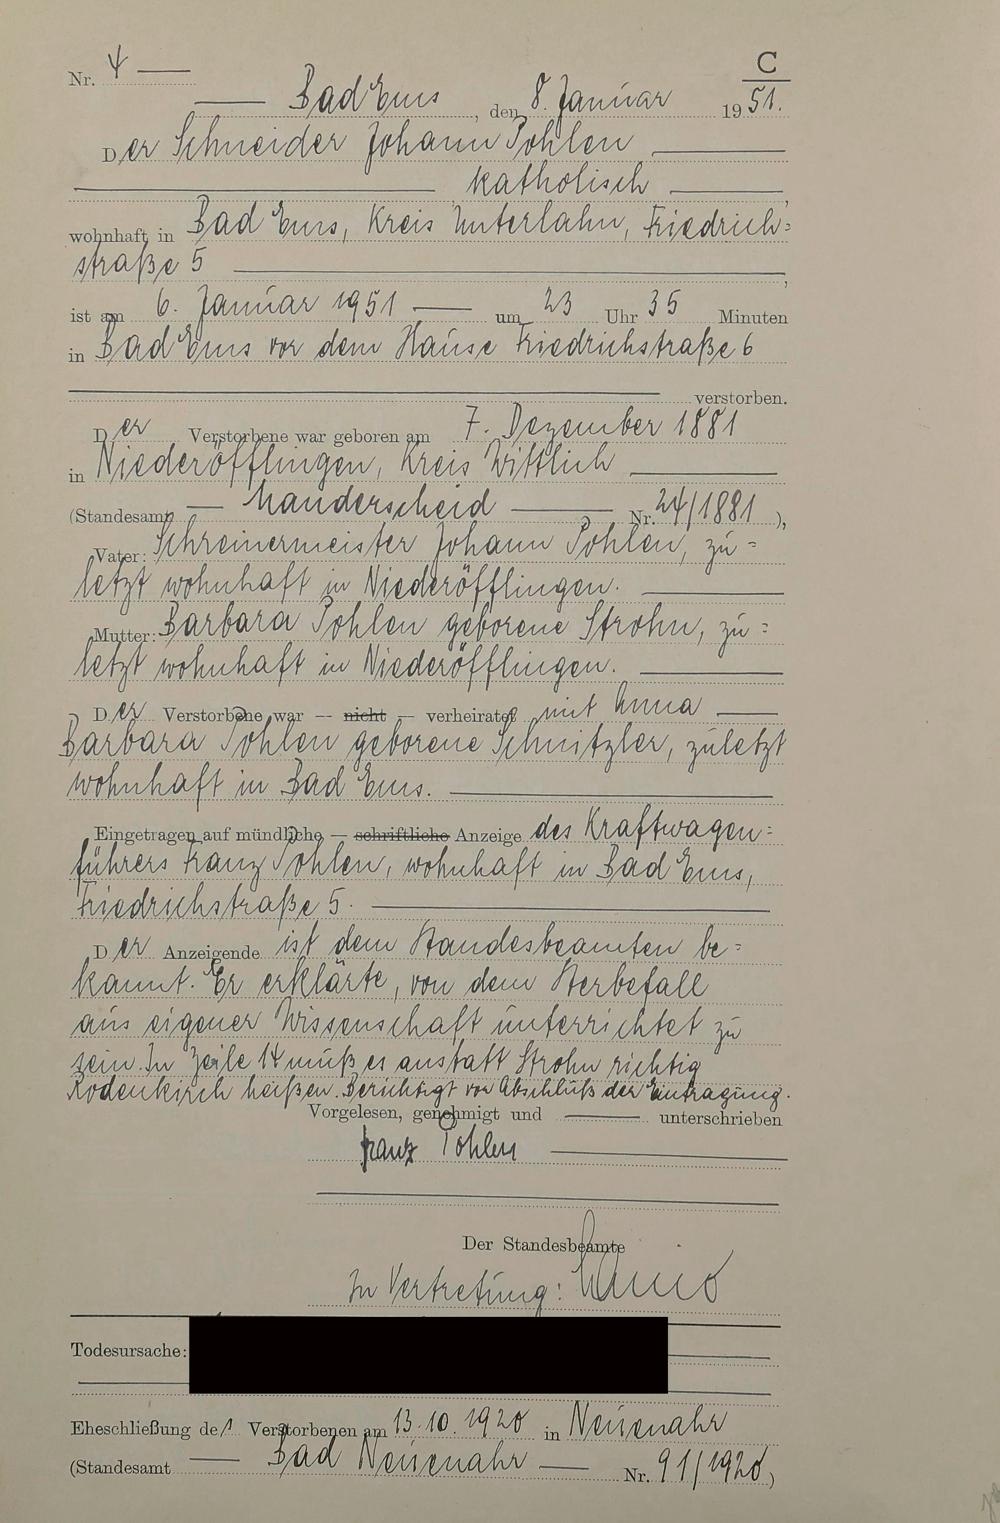 C
Nr. 4
Bad Ems, den 8. Januar 1951.
Der Schneider Johann Pohlen
katholisch,
wohnhaft in Bad Ems, Kreis Unterlahn, Friedrich=
straße 5,
ist am 6. Januar 1951 um 23 Uhr 35 Minuten
in Bad Ems vor dem Hause Friedrichstraße 6
verstorben.
Der Verstorbene war geboren am 7. Dezember 1881
in Niederöfflingen, Kreis Wittlich
(Standesamt Manderscheid Nr. 24/1881),
Vater: Schreinermeister Johann Pohlen, zu=
letzt wohnhaft in Niederöfflingen.
Mutter: Barbara Pohlen geborene Strohn, zu=
letzt wohnhaft in Niederöfflingen.
Der Verstorbene war — nicht — verheiratet mit Anna
Barbara Pohlen geborene Schnitzler, zuletzt
wohnhaft in Bad Ems.
Eingetragen auf mündliche — schriftliche Anzeige des Kraftwagen=
führers Franz Pohlen, wohnhaft in Bad Ems,
Friedrichstraße 5.
Der Anzeigende ist dem Standesbeamten be=
kannt. Er erklärte, von dem Sterbefall
aus eigener Wissenschaft unterrichtet zu
sein. In Zeile 14 muß es anstatt Strohn richtig
Rodenkirch heißen. Berichtigt vor Abschluß der Eintragung.
Vorgelesen, genehmigt und unterschrieben
Franz Pohlen
Der Standesbeamte
In Vertretung:
Todesursache:
Eheschließung des Verstorbenen am 13.10.1920 in Neuenahr
(Standesamt Bad Neuenahr Nr. 91/1920)